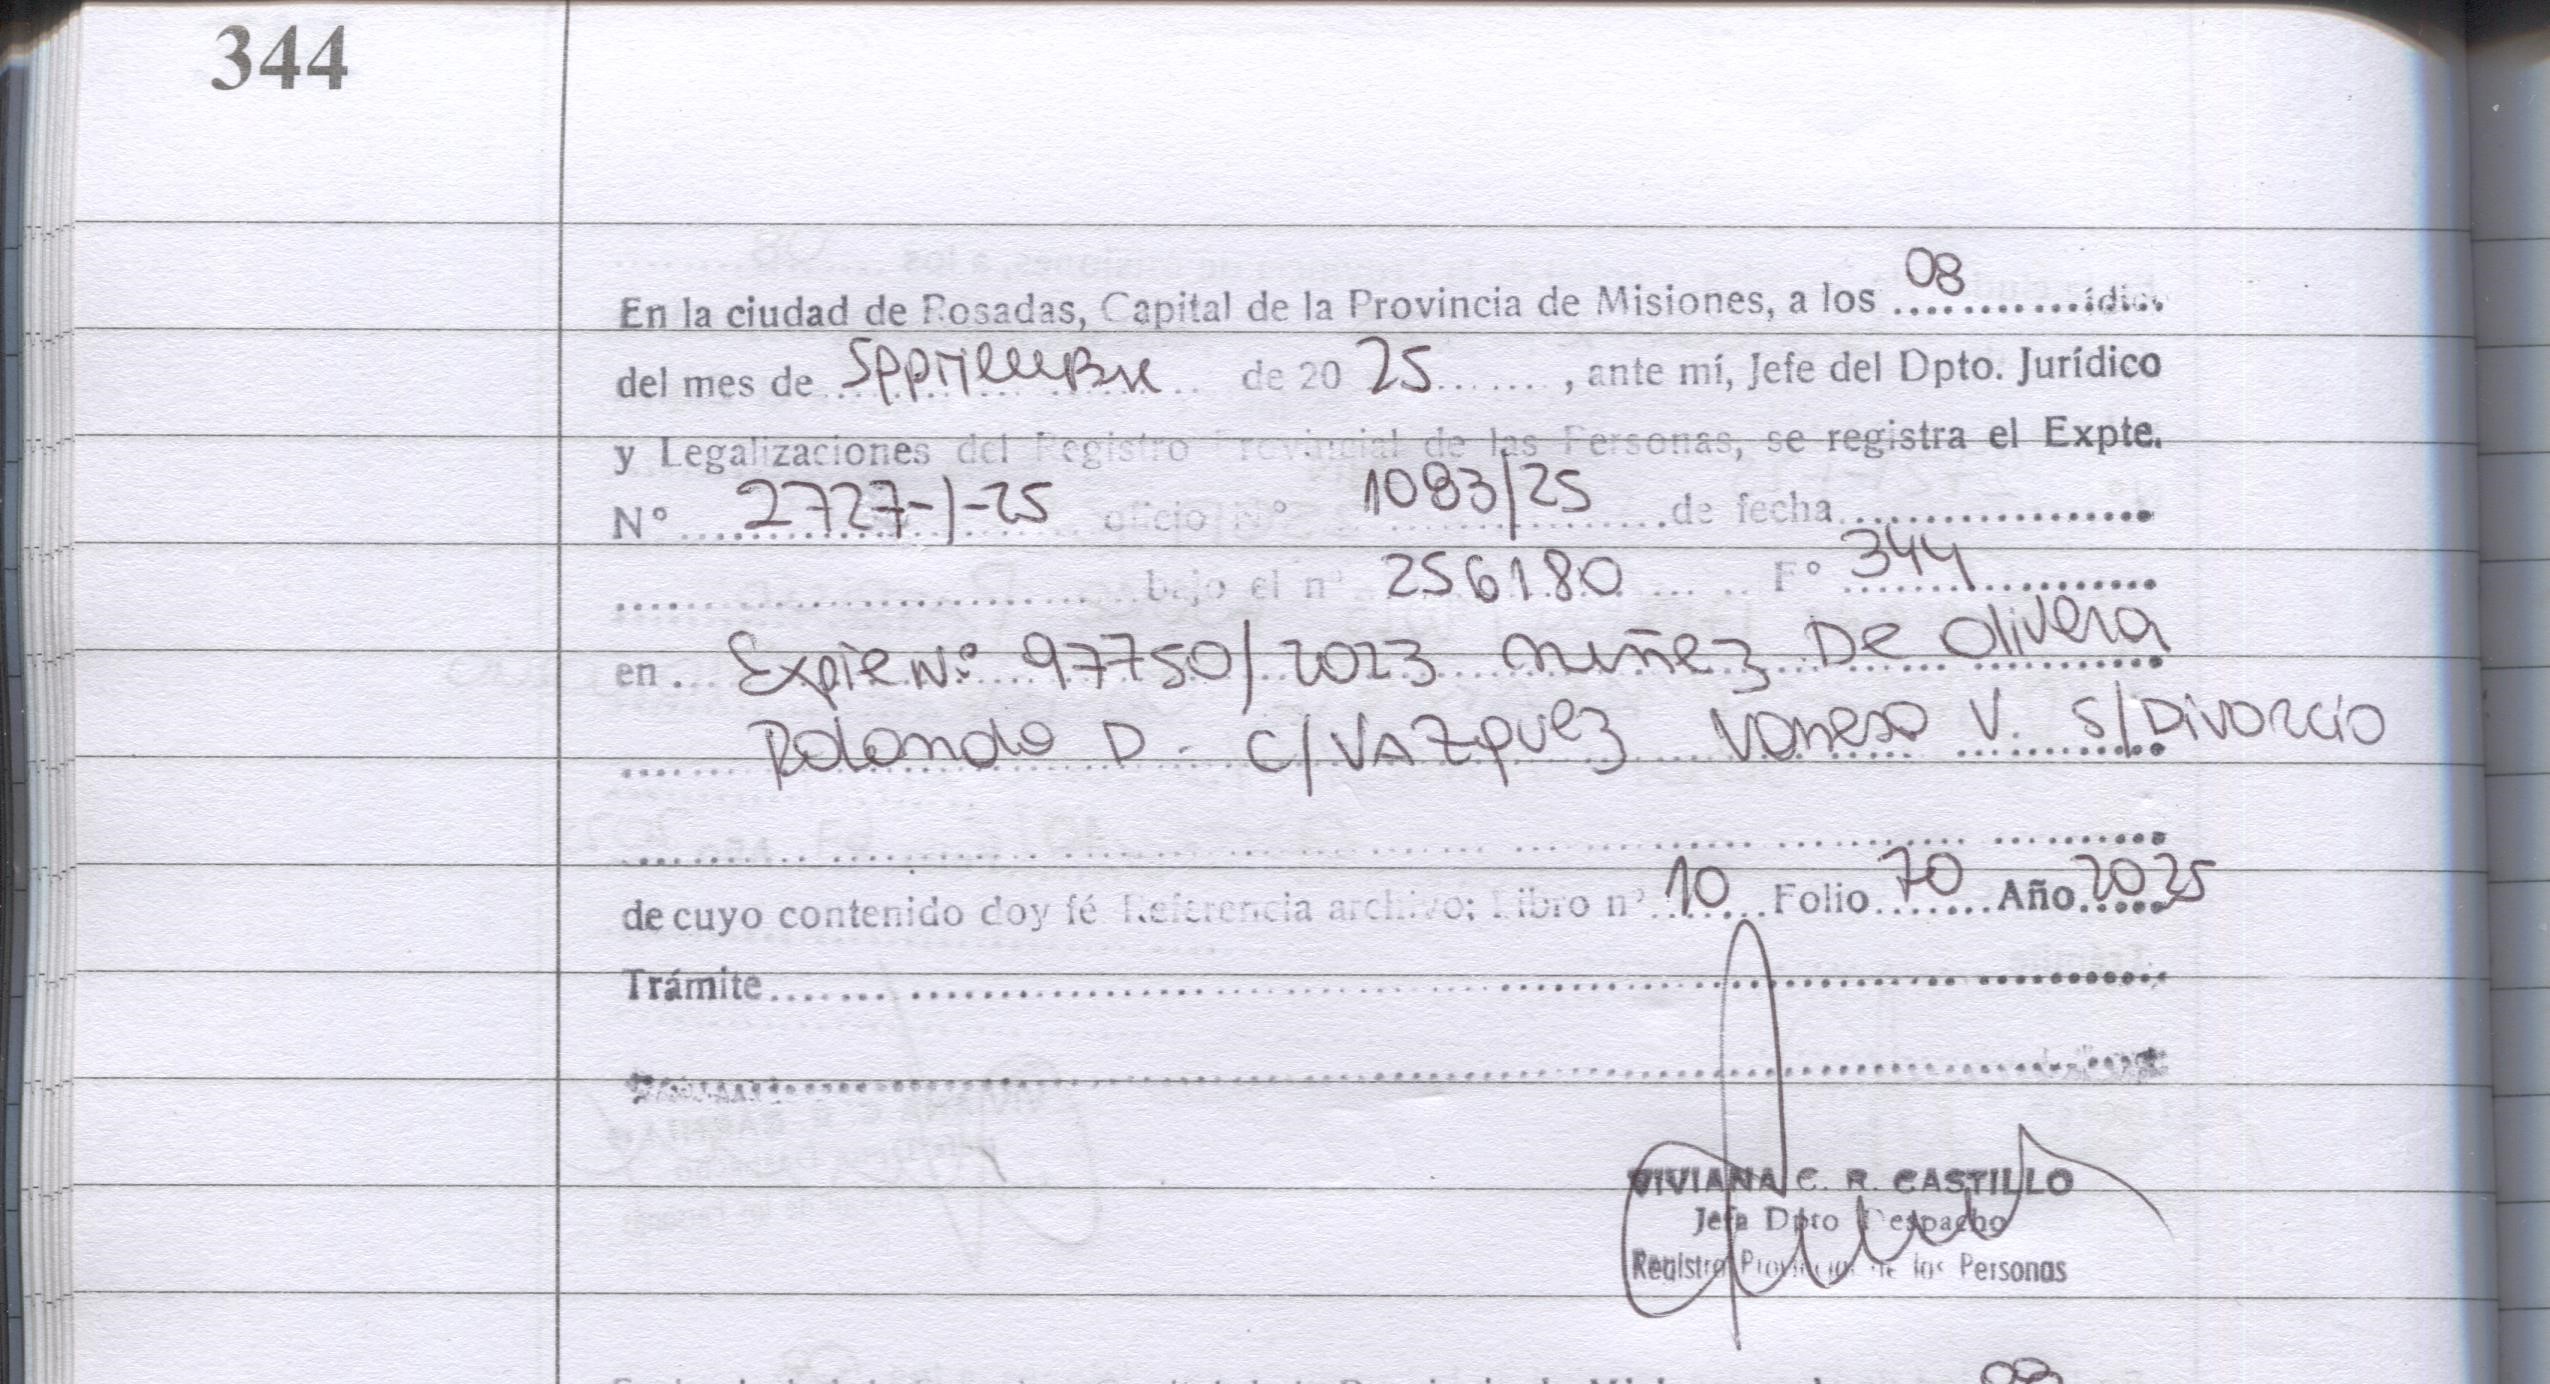 344
En la ciudad de Posadas, Capital de la Provincia de Misiones, a los 08
del mes de Septiembre de 20 25 , ante mí, Jefe del Dpto. Jurídico
y Legalizaciones del Registro Provincial de las Personas, se registra el Expte.
N° 2727-J-25 oficio N° 1083/25 de fecha
bajo el n° 256180 F° 344
en Expte N° 97750/2023 Nuñez De Olivera
Rolando D. C/ VAZquez Vanesa V. S/Divorcio
de cuyo contenido doy fé Referencia archivo: Libro n° 10 Folio 70 Año 2025
Trámite
VIVIANA C. R. CASTILLO
Jefa Dpto Despacho
Registro Provincial de las Personas